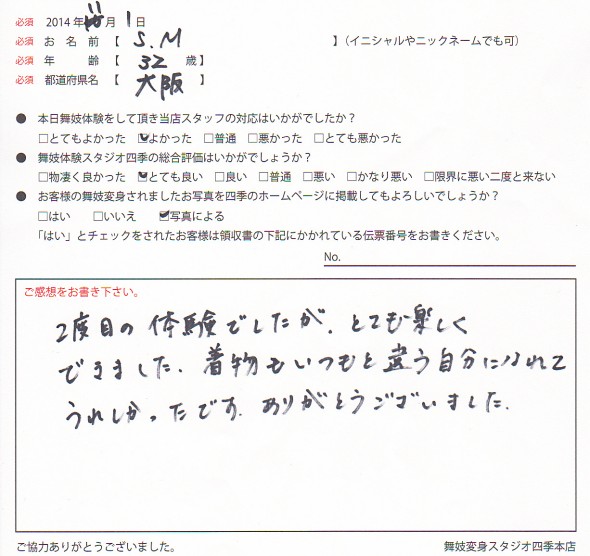 必須 2014年11月1日
必須 お名前【 S.M 】(イニシャルやニックネームでも可)
必須 年齢【 32 歳】
必須 都道府県名【 大阪 】
● 本日舞妓体験をして頂き当店スタッフの対応はいかがでしたか?
□とてもよかった ☑よかった □普通 □悪かった □とても悪かった
● 舞妓体験スタジオ四季の総合評価はいかがでしょうか?
□物凄く良かった ☑とても良い □良い □普通 □悪い □かなり悪い □限界に悪い二度と来ない
● お客様の舞妓変身されましたお写真を四季のホームページに掲載してもよろしいでしょうか?
□はい □いいえ ☑写真による
「はい」とチェックをされたお客様は領収書の下記にかかれている伝票番号をお書きください。
No.
ご感想をお書き下さい。
2度目の体験でしたが、とても楽しく
できました。着物もいつもと違う自分になれて
うれしかったです。ありがとうございました。
ご協力ありがとうございました。
舞妓変身スタジオ四季本店